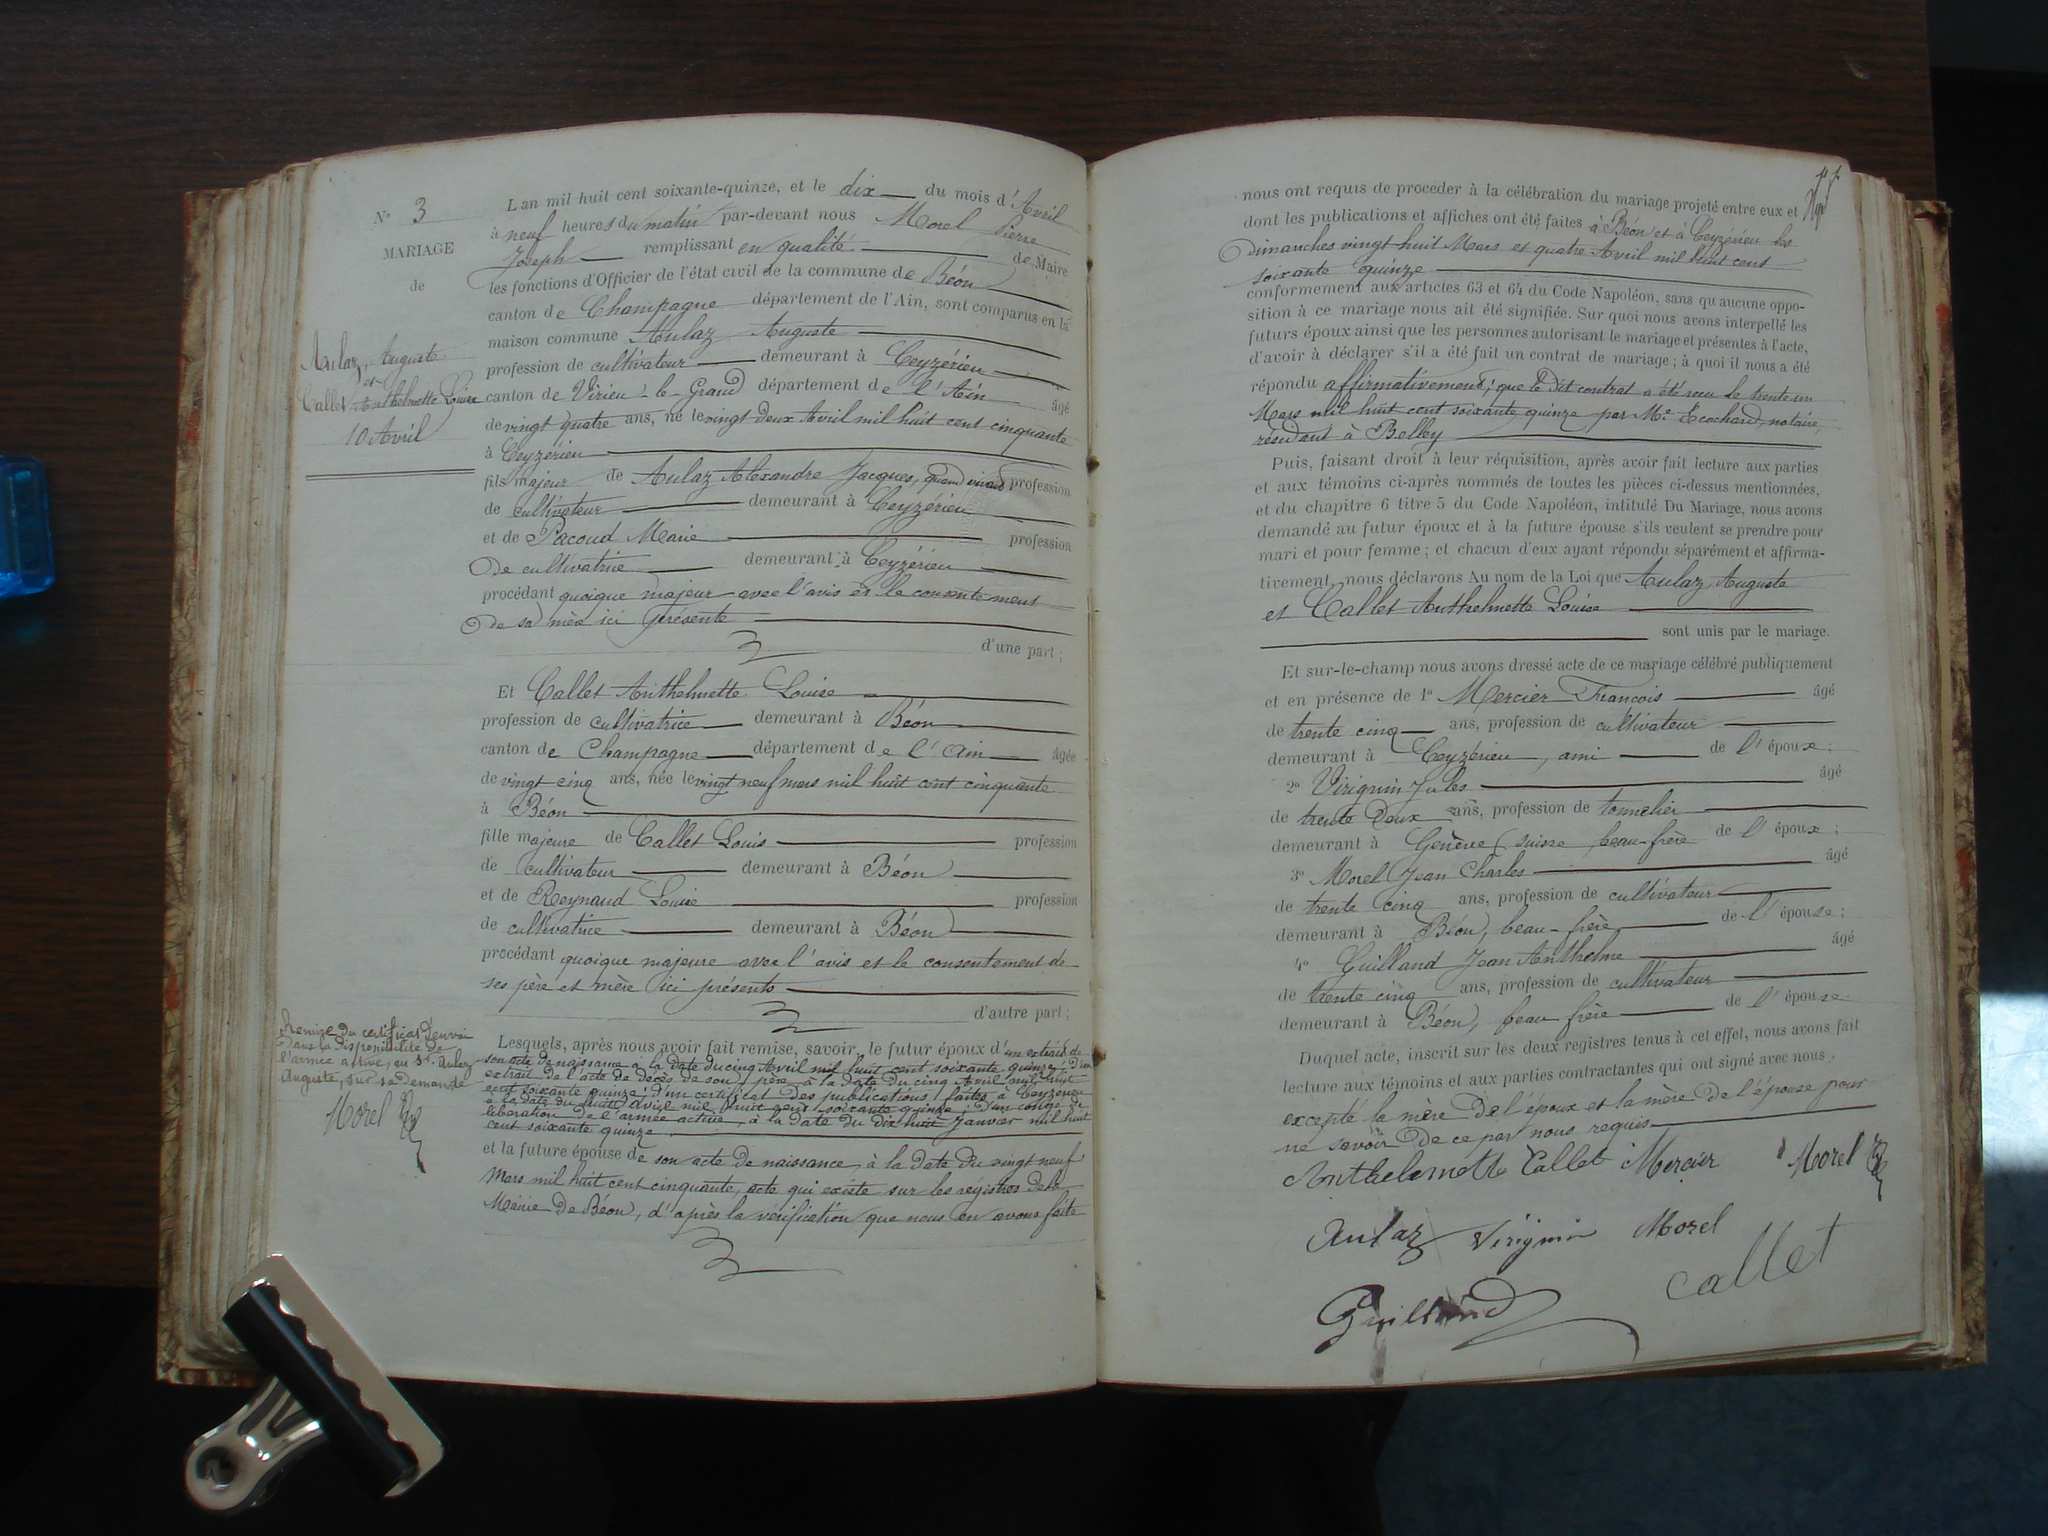 N° 3
MARIAGE
de
Aulaz, Auguste
et
Callet Anthelmette Louise
10 Avril
L'an mil huit cent soixante-quinze, et le dix du mois d'Avril
à neuf heures du matin par-devant nous Morel Pierre
Joseph remplissant en qualité de Maire
les fonctions d'Officier de l'état civil de la commune de Béon
canton de Champagne département de l'Ain, sont comparus en la
maison commune Aulaz Auguste
profession de cultivateur demeurant à Ceyzérieu
canton de Virieu-le-Grand département de l'Ain âgé
de vingt quatre ans, né le vingt deux Avril mil huit cent cinquante
à Ceyzérieu
fils majeur de Aulaz Alexandre Jacques, quand vivait profession
de cultivateur demeurant à Ceyzérieu
et de Pacoud Marie profession
de cultivatrice demeurant à Ceyzérieu
procédant quoique majeur avec l'avis et le consentement
de sa mère ici présente
d'une part;
Et Callet Anthelmette Louise
profession de cultivatrice demeurant à Béon
canton de Champagne département de l'Ain âgée
de vingt cinq ans, née le vingt neuf mars mil huit cent cinquante
à Béon
fille majeure de Callet Louis profession
de cultivateur demeurant à Béon
et de Reynaud Louise profession
de cultivatrice demeurant à Béon
procédant quoique majeure avec l'avis et le consentement de
ses père et mère ici présents
d'autre part;
Remise du certificat d'envoi
dans la disponibilité de
l'armée active, au Sr. Aulaz
Auguste, sur sa demande
Morel
Lesquels, après nous avoir fait remise, savoir, le futur époux d'un extrait de
son acte de naissance à la date du cinq Avril mil huit cent soixante quinze, d'un
extrait de l'acte de décès de son père à la date du cinq Avril mil huit
cent soixante quinze, d'un certificat des publications faites à Ceyzérieu
à la date du huit Avril mil huit cent soixante quinze; d'un congé de
libération de l'armée active, à la date du dix huit Janvier mil huit
cent soixante quinze
et la future épouse de son acte de naissance, à la date du vingt neuf
Mars mil huit cent cinquante, acte qui existe sur les régistres de la
Mairie de Béon, d'après la vérification que nous en avons faite
nous ont requis de procéder à la célébration du mariage projeté entre eux et
dont les publications et affiches ont été faites à Béon et à Ceyzérieu les
Dimanches vingt huit Mars et quatre Avril mil huit cent
soixante quinze
conformément aux articles 63 et 64 du Code Napoléon, sans qu'aucune oppo-
sition à ce mariage nous ait été signifiée. Sur quoi nous avons interpellé les
futurs époux ainsi que les personnes autorisant le mariage et présentes à l'acte,
d'avoir à déclarer s'il a été fait un contrat de mariage; à quoi il nous a été
répondu affirmativement; que le dit contrat a été reçu le trente un
Mars mil huit cent soixante quinze par Me Ecochard, notaire,
résidant à Belley
Puis, faisant droit à leur réquisition, après avoir fait lecture aux parties
et aux témoins ci-après nommés de toutes les pièces ci-dessus mentionnées,
et du chapitre 6 titre 5 du Code Napoléon, intitulé Du Mariage, nous avons
demandé au futur époux et à la future épouse s'ils veulent se prendre pour
mari et pour femme; et chacun d'eux ayant répondu séparément et affirma-
tivement, nous déclarons Au nom de la Loi que Aulaz, Auguste
et Callet Anthelmette Louise
sont unis par le mariage.
Et sur-le-champ nous avons dressé acte de ce mariage célébré publiquement
et en présence de 1° Mercier François âgé
de trente cinq ans, profession de cultivateur
demeurant à Ceyzérieu, ami de l'époux;
2° Virignin Jules âgé
de trente deux ans, profession de tonnelier
demeurant à Genève (suisse beau-frère de l'époux;
3° Morel Jean Charles âgé
de trente cinq ans, profession de cultivateur
demeurant à Béon, beau-frère de l'épouse;
4° Guilland Jean Anthelme âgé
de trente cinq ans, profession de cultivateur
demeurant à Béon, beau frère de l'épouse.
Duquel acte, inscrit sur les deux registres tenus à cet effet, nous avons fait
lecture aux témoins et aux parties contractantes qui ont signé avec nous,
excepté la mère de l'époux et la mère de l'épouse pour
ne savoir de ce par nous requis
Anthelemette Callet Mercier Morel
Aulaz Virignin Morel
Guilland Callet